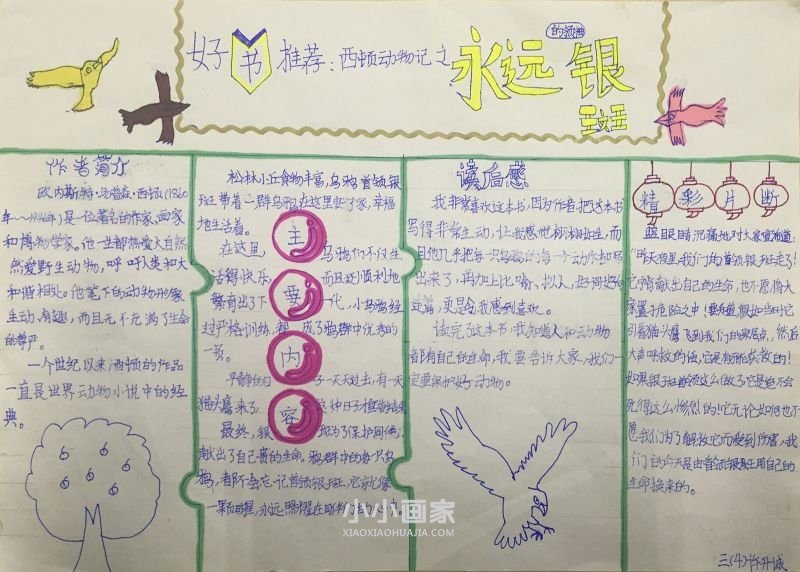 好书推荐：西顿动物记之
永远的领袖银班
作者简介
欧内斯特·马塔森·西顿(1860
年～1946年)是一位著名的作家、画家
和博物学家。他一生都热爱大自然
然爱野生动物，呼吁人类和大
和谐相处。他笔下的动物形象
生动有趣，而且无不充满了生命
的尊严。
一个世纪以来西顿的作品
一直是世界动物小说中的经
典。
主要内容
松林小丘食物丰富，乌鸦首领银
班带着一群乌鸦在这里安了家，幸福
地生活着。
在这里，乌鸦们不仅生
活得快乐，而且还顺利地
繁育出了下一代，小乌鸦经
过严格训练，都成了鸦群中优秀的
一员。
子一天天过去，有一天
猫头鹰来了，
最终，银班为了保护同伴，
献出了自己
鸦，者都不会忘记首领银班，它就像
一颗明星，永远照耀在
读后感
我非常喜欢这本书，因为作者把这本书
写得非常生动，让我感觉栩栩如生，而
且他几乎把每一只乌鸦的每一个动作都写
出来了，再加上比喻、拟人，好词好句
更是令我感到喜欢。
读完了这本书，我知道人和动物
都有自己的生命，我要告诉大家，我们一
定要保护好动物。
精彩片断
蓝眼睛沉痛地对大家宣布道：
“昨天夜里，我们的首领银班走了！
它宁肯献出自己的生命，也不愿将大
家置于危险之中！要知道，假如当时它
引着猫头鹰飞到我们的栖居点，然后
大声呼救的话，它是有可能获救的！
如果银班首领这么做了，它是绝不会
死得这么惨烈的！它无论如何也不
愿我们为了解救它而受到伤害，我
们的今天是由首领银班用自己的
生命换来的。
三(4)许丹诚
小小画家
XIAOXIAOHUAJIA.COM